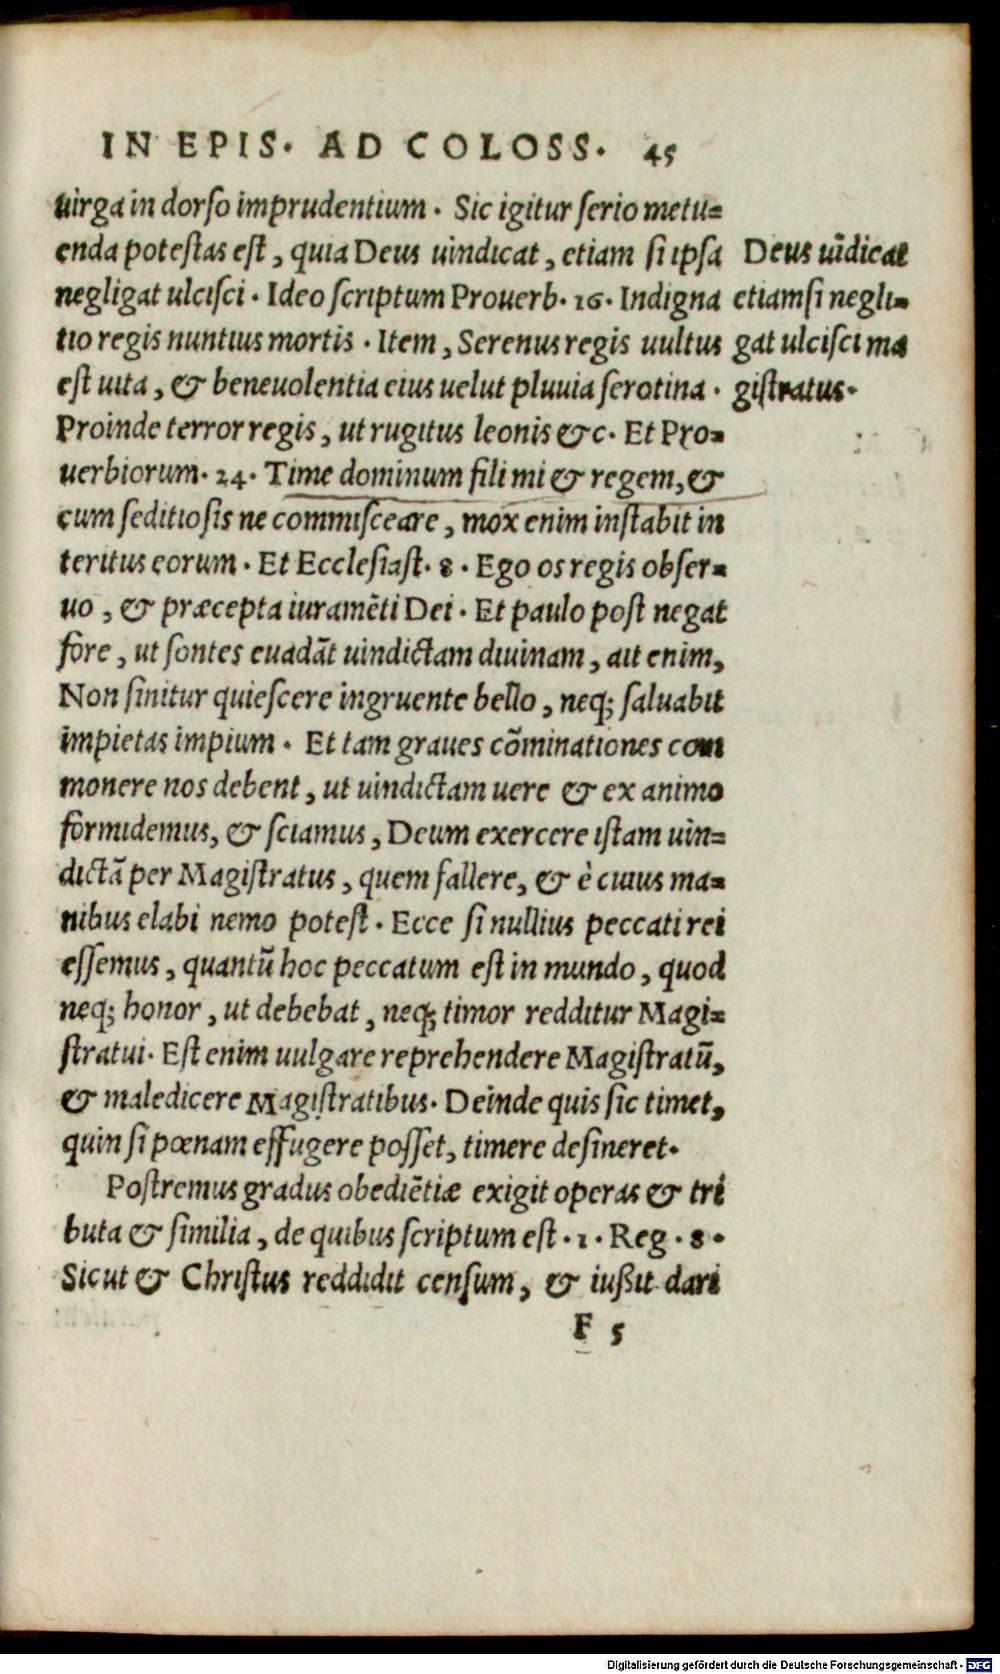 IN EPIS. AD COLOSS. 45
uirga in dorso imprudentium. Sic igitur serio metu=
enda potestas est, quia Deus uindicat, etiam si ipsa
negligat ulcisci. Ideo scriptum Prouerb. 16. Indigna
tio regis nuntius mortis. Item, Serenus regis uultus
est uita, & beneuolentia eius uelut pluuia serotina.
Proinde terror regis, ut rugitus leonis &c. Et Pro=
uerbiorum. 24. Time dominum fili mi & regem, &
cum seditiosis ne commisceare, mox enim instabit in
teritus eorum. Et Ecclesiast. 8. Ego os regis obser=
uo, & præcepta iuramēti Dei. Et paulo post negat
fore, ut sontes euadāt uindictam diuinam, ait enim,
Non sinitur quiescere ingruente bello, neq; saluabit
impietas impium. Et tam graues cōminationes com
monere nos debent, ut uindictam uere & ex animo
formidemus, & sciamus, Deum exercere istam uin=
dictā per Magistratus, quem fallere, & è cuius ma=
nibus elabi nemo potest. Ecce si nullius peccati rei
essemus, quantū hoc peccatum est in mundo, quod
neq; honor, ut debebat, neq; timor redditur Magi=
stratui. Est enim uulgare reprehendere Magistratū,
& maledicere Magistratibus. Deinde quis sic timet,
quin si pœnam effugere posset, timere desineret.
Postremus gradus obediētiæ exigit operas & tri
buta & similia, de quibus scriptum est. 1. Reg. 8.
Sicut & Christus reddidit censum, & iußit dari
F 5
Deus uīdicat
etiamsi negli=
gat ulcisci ma
gistratus.
Digitalisierung gefördert durch die Deutsche Forschungsgemeinschaft - DFG